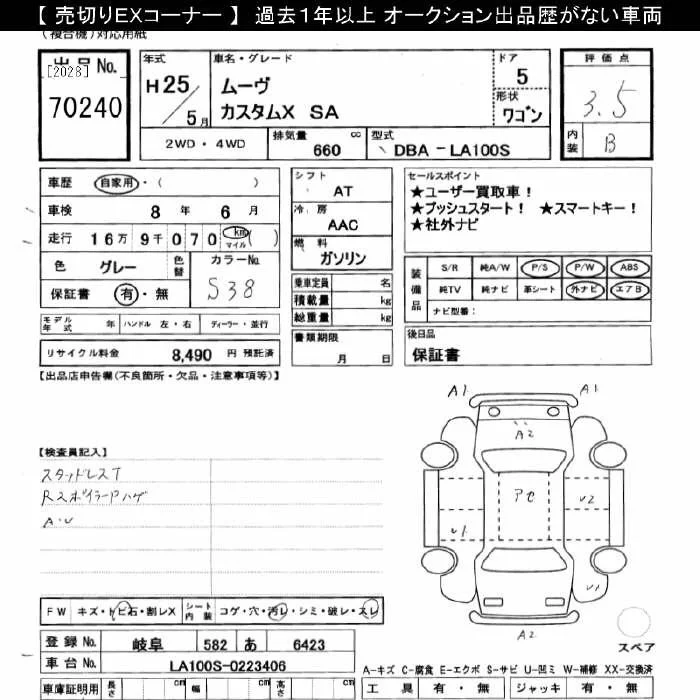 【 売切りEXコーナー 】 過去1年以上 オークション出品歴がない車両
(複合機)対応用紙
出品No. [2028] 70240
年式 H25/5月
車名・グレード ムーヴ
カスタムX SA
ドア 5
形状 ワゴン
評価点 3.5
内装 B
2WD・4WD
排気量 660 cc
型式 DBA-LA100S
車歴 自家用・( )
車検 8年 6月
走行 16万 9千 070 km マイル ( )
色 グレー
色替
カラーNo. S38
保証書 有・無
モデル年式 年 ハンドル 左・右 ディーラー・並行
リサイクル料金 8,490 円 預託済
シフト AT
冷房 AAC
燃料 ガソリン
乗車定員 名
積載量 kg
総重量 kg
書類期限 月 日
セールスポイント
★ユーザー買取車!
★プッシュスタート! ★スマートキー!
★社外ナビ
装備品
S/R 純A/W P/S P/W ABS
純TV 純ナビ 革シート 外ナビ エアB
ナビ型番:
後日品
保証書
【出品店申告欄(不良箇所・欠品・注意事項等)】
【検査員記入】
スタッドレスT
RスポイラーPハゲ
A・U
A1 A1
A2
アセ
U2
U1
U1
A2
スペア
FW キズ・トビ石・割レX シート内装 コゲ・穴・汚レ・シミ・破レ・スレ
登録No. 岐阜 582 あ 6423
車台No. LA100S-0223406
車庫証明用 長さ cm 幅 cm 高さ cm
A-キズ C-腐食 E-エクボ S-サビ U-凹ミ W-補修 XX-交換済
工具 有・無 ジャッキ 有・無